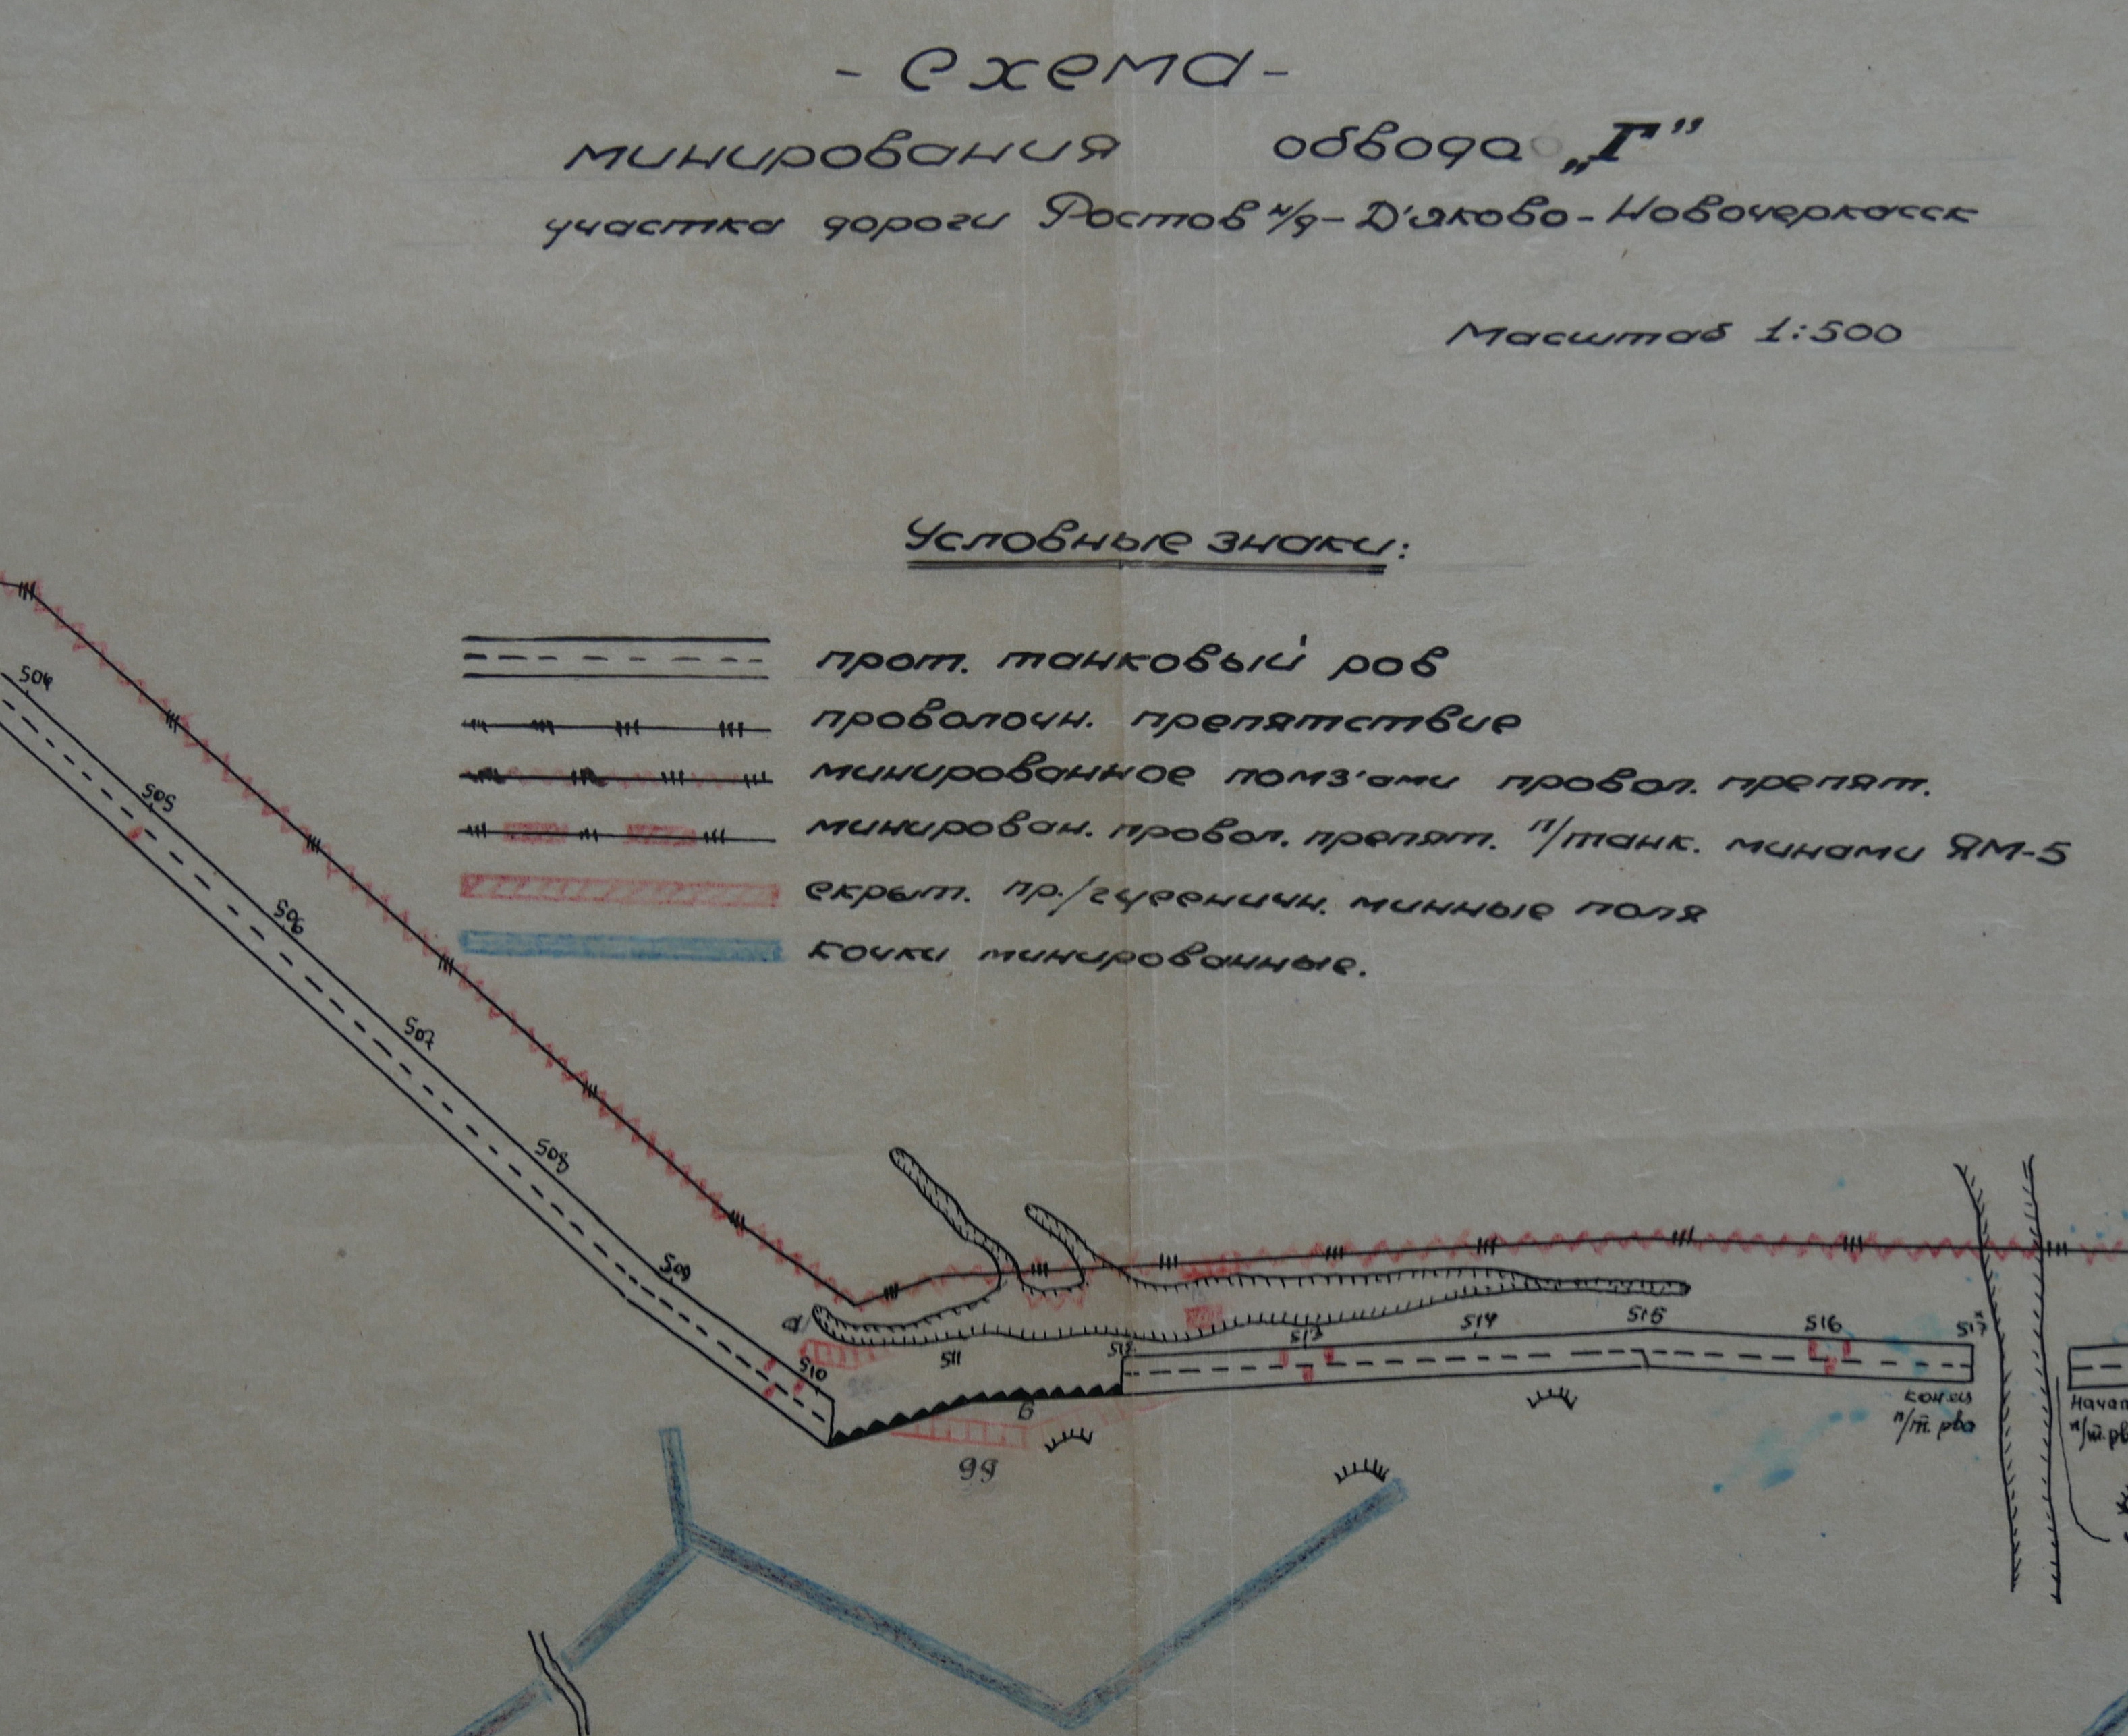 - схема -
минирования обвода „Г”
участка дороги Ростов н/д - Д'яково - Новочеркасск
Масштаб 1:500
Условные знаки:
прот. танковый ров
проволочн. препятствие
минированное помз'ами провол. препят.
минирован. провол. препят. п/танк. минами ЯМ-5
скрыт. пр./гусеничн. минные поля
кочки минированные.
504
505
506
507
508
509
510
а
511
512
513
514
515
516
517
б
99
конец
п/т. рва
начал
п/т. рв